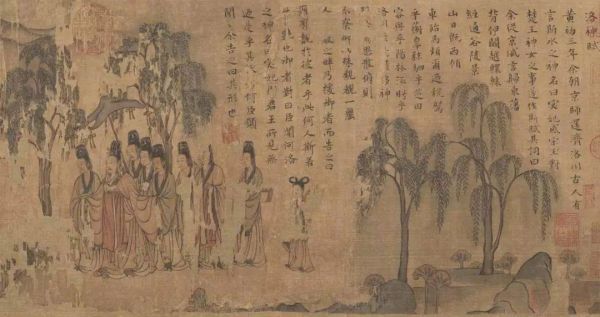 洛神賦
黃初三年余朝京師還濟洛川古人有
言斯水之神名曰宓妃感宋玉對
楚王神女之事遂作斯賦其詞曰
余從京域言歸東藩
背伊闕越轘轅
經通谷陵景
山日既西傾
車殆馬煩爾迺稅駕
乎蘅皋秣駟乎芝田
容與乎陽林流眄乎
洛川於是精移神
思散俯則
未察仰以殊觀覩一麗
之畔乃援御者而告之曰
爾有覿於彼者乎此何人斯若
此之艷也御者對曰臣聞河洛
之神名曰宓妃則君王所見無
迺是乎其狀若何臣願
聞之余告之曰其形也